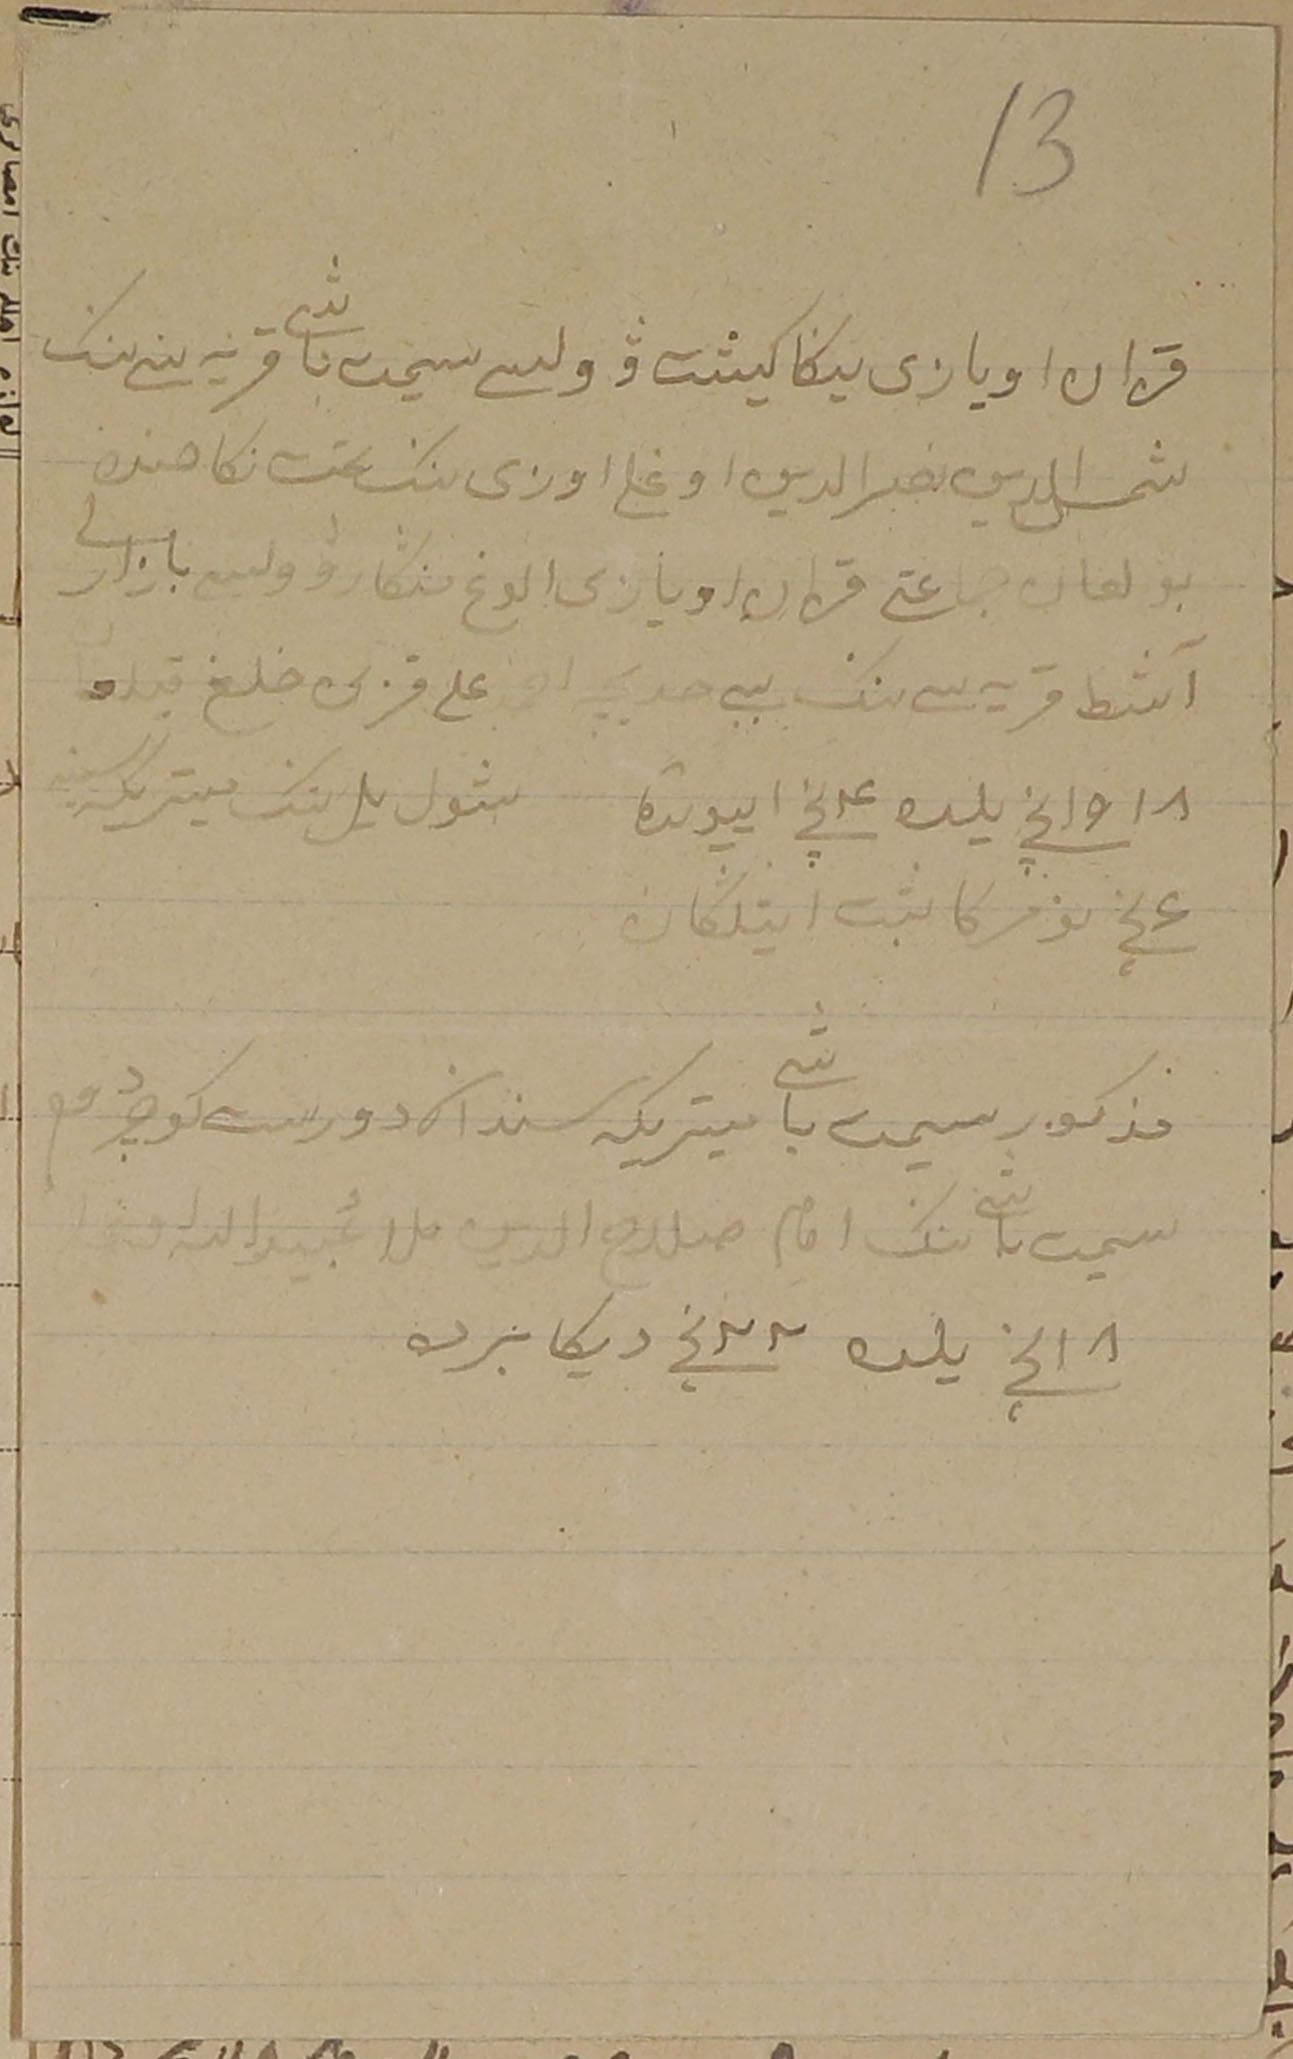 13
قزان اویازی ینکا کیشت ۋولسی سیمت باشی قریه سی ننک
شمس الدین نصرالدین اوغلی اوزی ننک تحت نکاحنده
بولغان جماعتی قزان اویازی الوغ منکار ۋولس بازارلی
آشط قریه سی ننک بیبی خدیجه علی قزی خلع قیلدی
۱۹۱۸نچی یلده ۴نچی اییونده شول یل ننک میتریکه سینه
۴نچی نومرکا ثبت ایتلکان
مذکور سیمت باشی میتریکه سندان دورست کوچردم
سیمت باشی ننک امام صلاح الدین ملا عبیدالله
۱۸نچی یلده ۲۲نچی دیکابرده